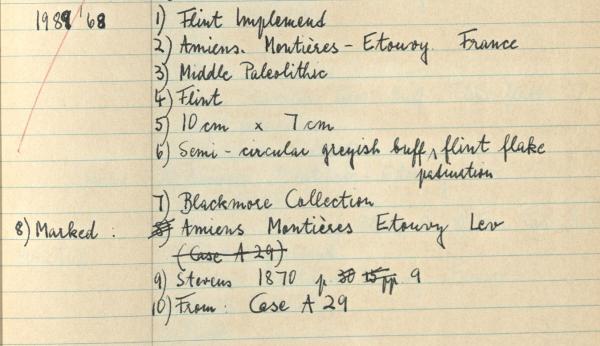 1989 '68 1) Flint Implemend
2) Amiens. Montières - Etouvy. France
3) Middle Paleolithic
4) Flint
5) 10 cm x 7 cm
6) Semi - circular greyish buff ^ flint flake
patination
7) Blackmore Collection
8) Marked : Amiens Montières Etouvy Lev
(Case A 29)
9) Stevens 1870 p 30 15 pp 9
10) From : Case A 29